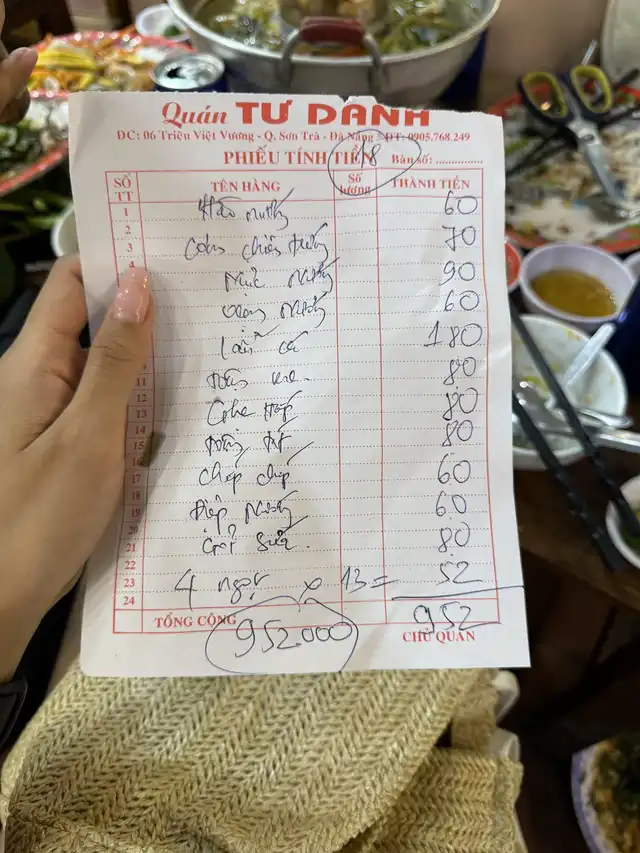 Quán TƯ DANH
ĐC: 06 Triệu Việt Vương - Q. Sơn Trà - Đà Nẵng - ĐT: 0905.768.249
PHIẾU TÍNH TIỀN 18 Bàn số: ..............
SỐ TT TÊN HÀNG Số lượng THÀNH TIỀN
1 Hào nướng 60
2
3 70
4 Mực nướng 90
nướng 60
Lẩu cá 180
11 80
12
13 Ghẹ hấp 80
14
15 80
16
17 Chíp chíp 60
18
19 Điệp nướng 60
20
21 Gỏi sứa. 80
22
23 4 ngọt x 13 = 52
24
TỔNG CỘNG 952.000 952
CHỦ QUÁN